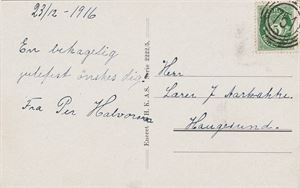 23/12 - 1916
En behagelig
julefest ønskes dig
Fra Per Halvorsen
Eneret J.H.K.A.S. Serie 2222/5.
Herr
Lærer J
Haugesund.